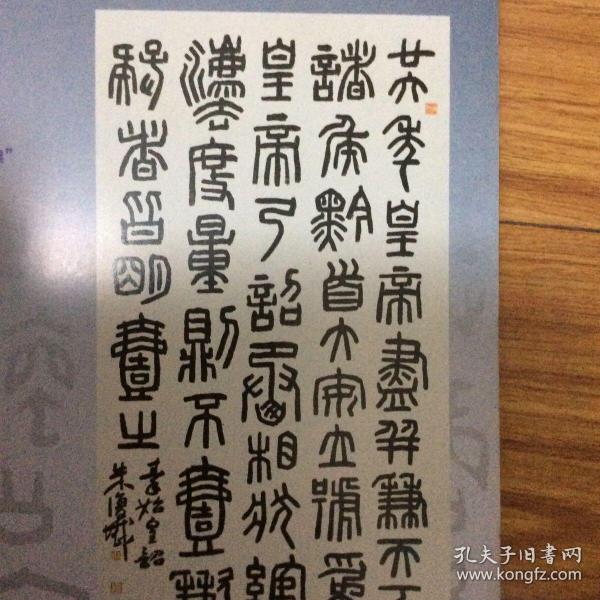 廿六年皇帝盡并兼天下
諸侯黔首大安立號為
皇帝乃詔丞相狀綰
灋度量則不壹歉
疑者皆明壹之
秦始皇詔
朱復戡
孔夫子旧书网
www.kongfz.com